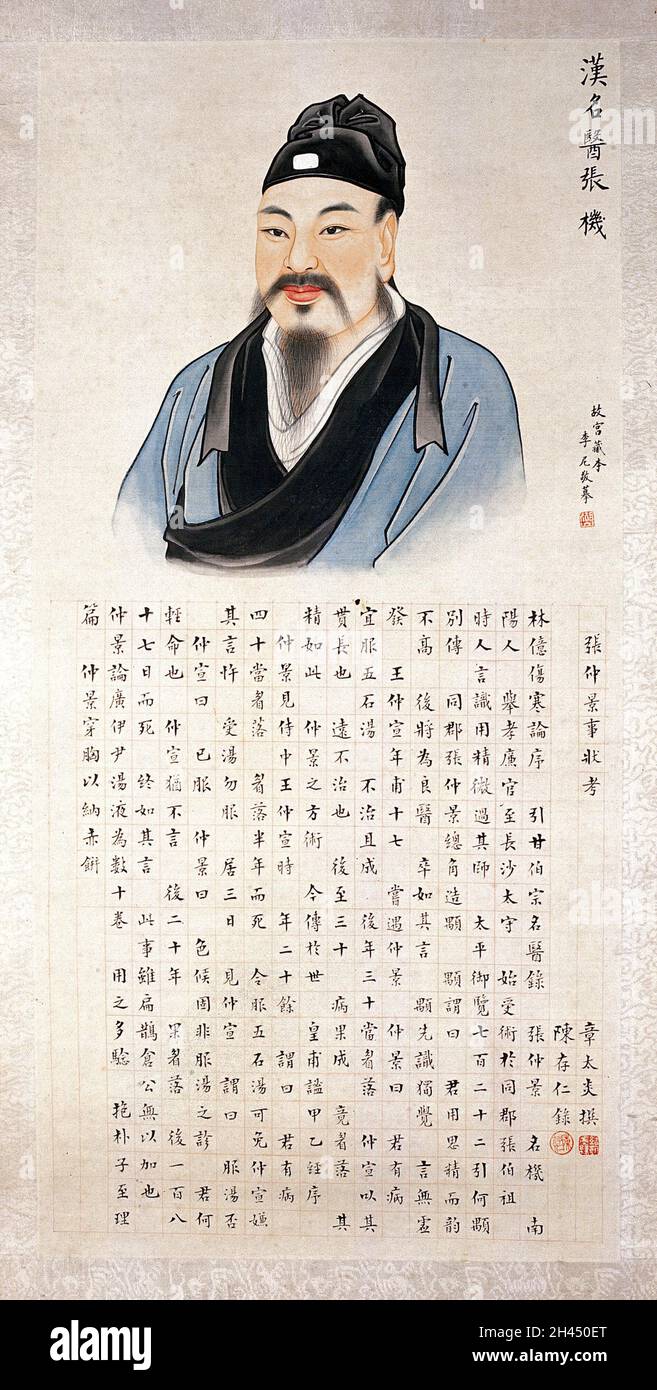 漢名醫張機
故宮藏本
李尼敬摹
張仲景事狀考
章太炎撰
陳存仁錄
林億傷寒論序 引甘伯宗名醫錄 張仲景 名機 南
陽人 舉孝廉官至長沙太守 始受術於同郡張伯祖
時人言識用精微過其師 太平御覽七百二十二引何顒
別傳 同郡張仲景總角造顒 顒謂曰 君用思精而韵
不高 後將為良醫 卒如其言 顒先識獨覺 言無虛
發 王仲宣年甫十七 嘗遇仲景 仲景曰 君有病
宜服五石湯 不治且成 後年三十當眉落 仲宣以其
貫長也 遠不治也 後至三十 病果成 竟眉落 其
精如此 仲景之方術 今傳於世 皇甫謐甲乙經序
仲景見侍中王仲宣時 年二十餘 謂曰 君有病
四十當眉落 眉落半年而死 令服五石湯可免仲宣嫌
其言忤 受湯勿服 居三日 見仲宣 謂曰 服湯否
仲宣曰 已服 仲景曰 色候固非服湯之診 君何
輕命也 仲宣猶不言 後二十年 果眉落 後一百八
十七日而死 終如其言 此事雖扁鵲倉公無以加也
仲景論廣伊尹湯液為數十卷 用之多驗 抱朴子至理
篇 仲景穿胸以納赤餅
alamy
alamy
Image ID: 2H450ET
www.alamy.com